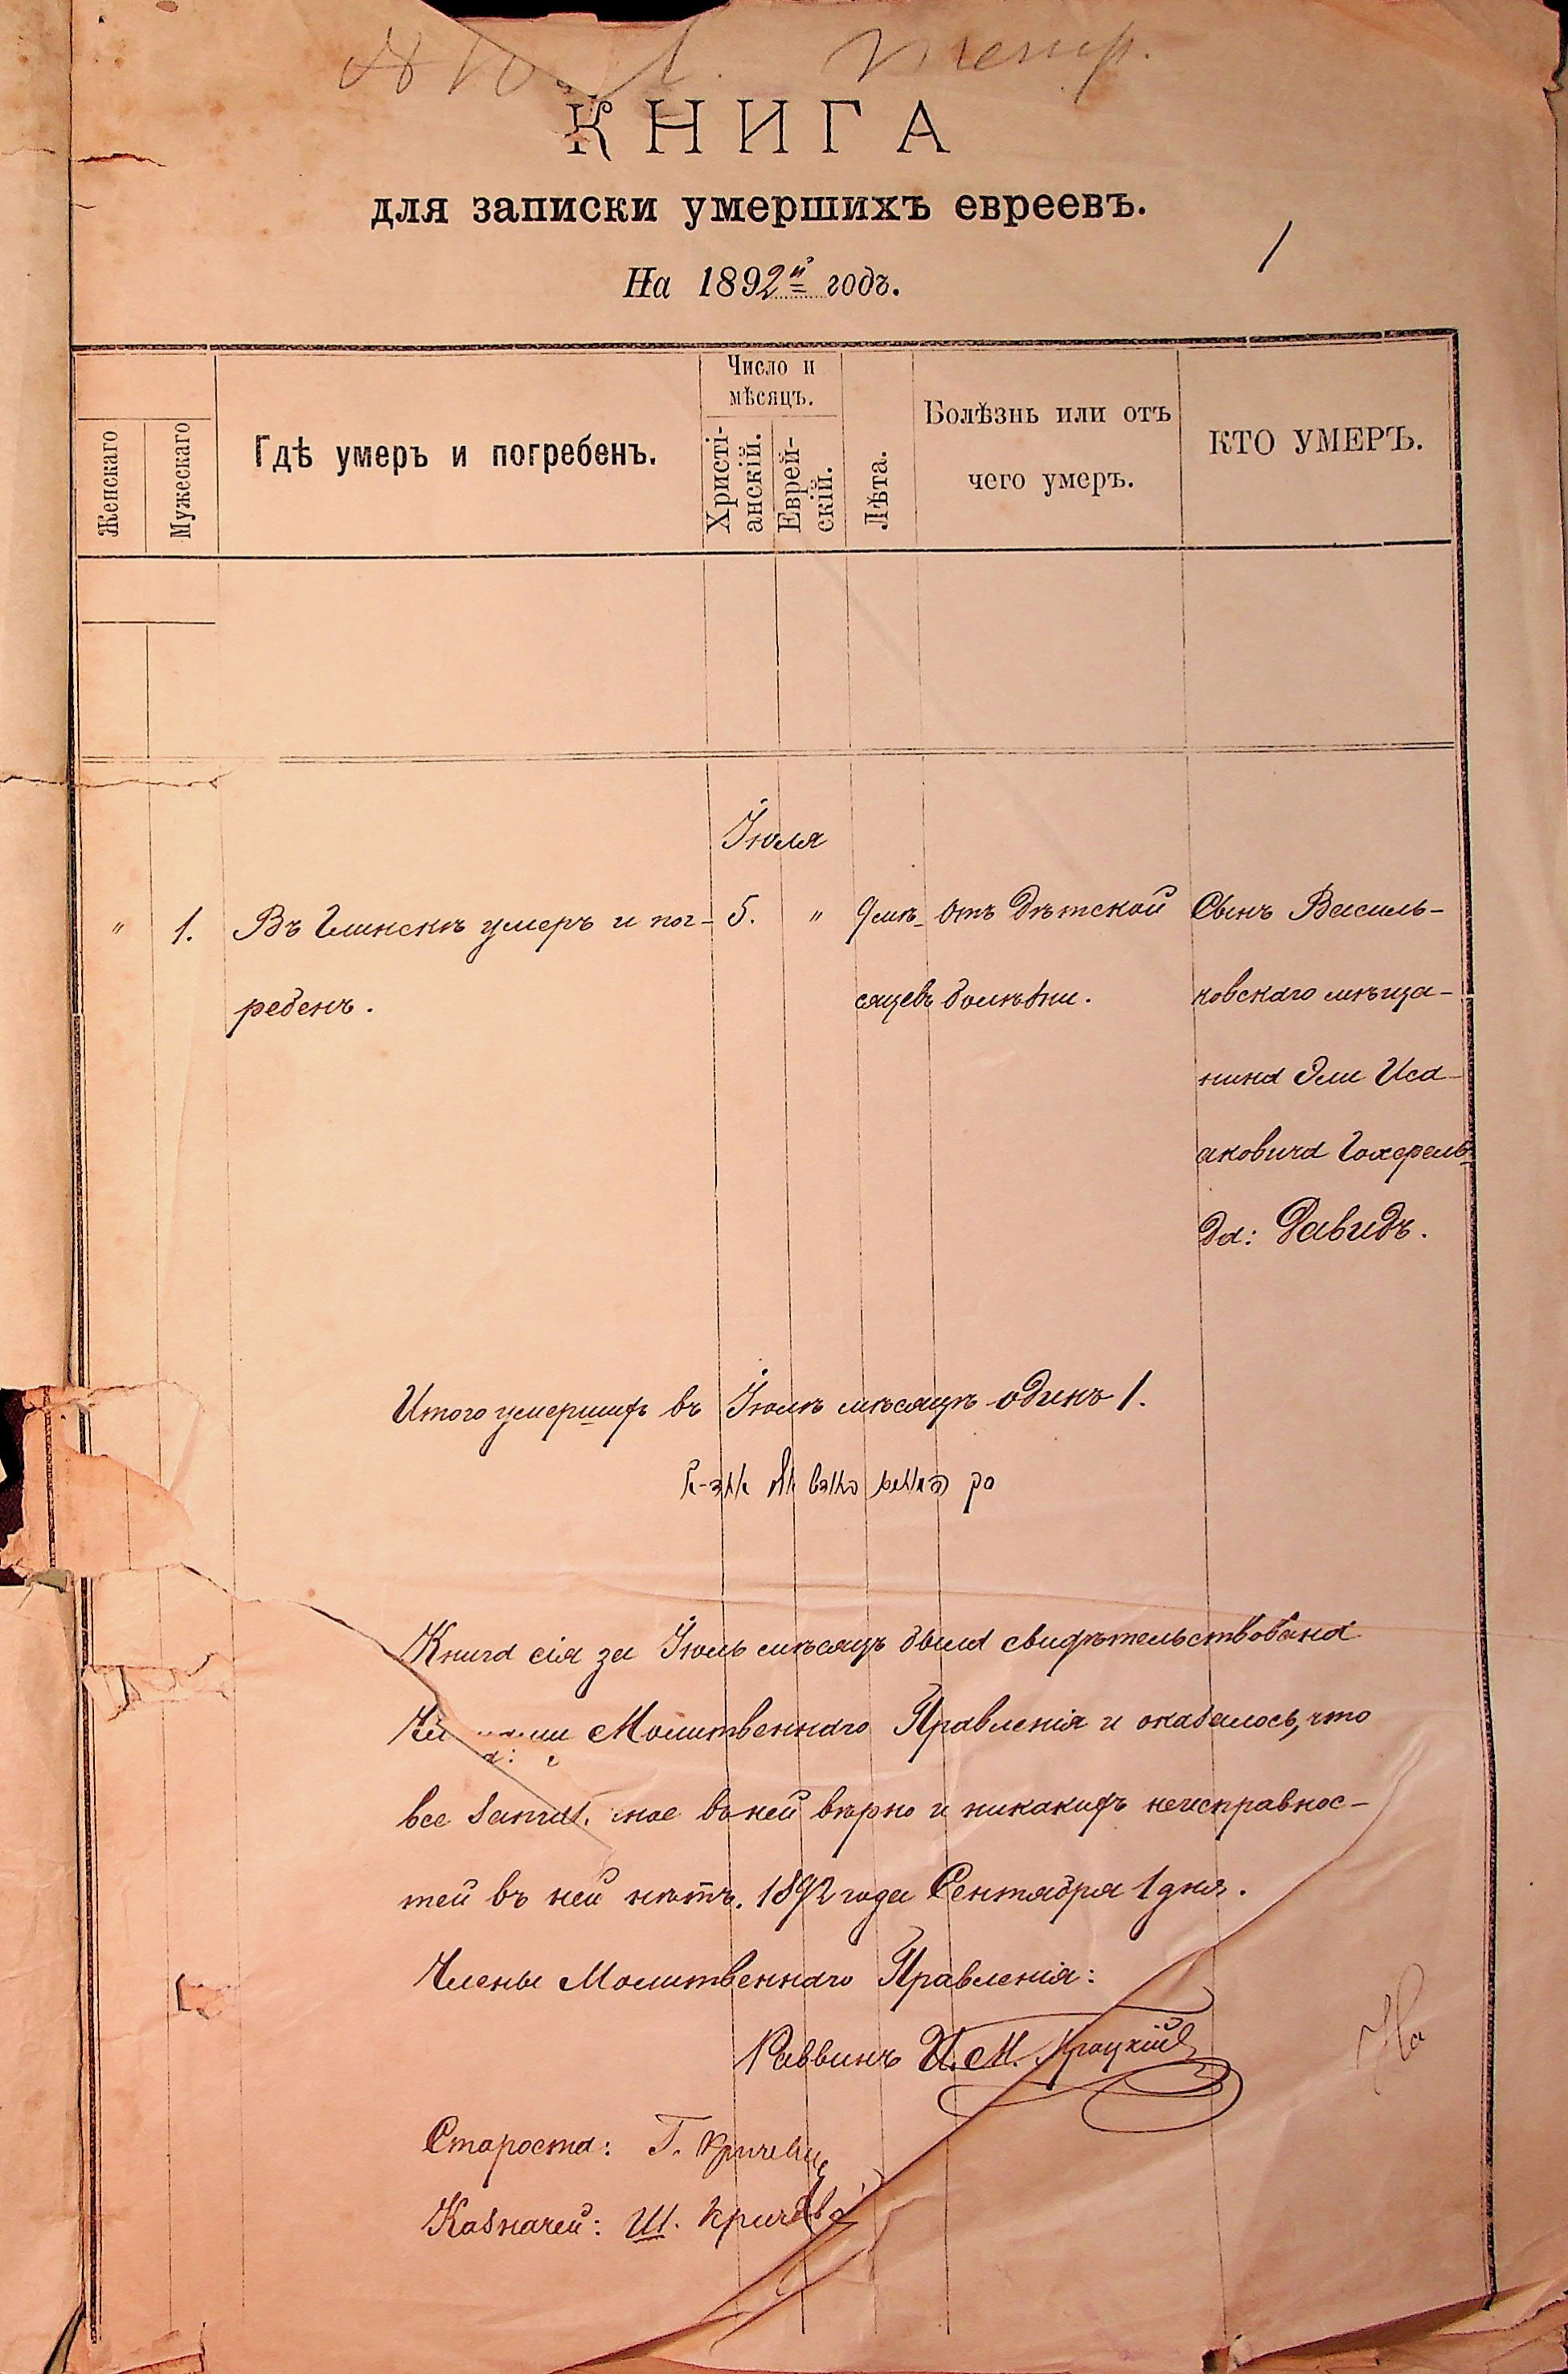 КНИГА
для записки умершихъ евреевъ.
1
На 1892й годъ.
Женскаго
Мужескаго
Гдѣ умеръ и погребенъ.
Число и
мѣсяцъ.
Христі-
анскій.
Еврей-
скій.
Лѣта.
Болѣзнь или отъ
чего умеръ.
КТО УМЕРЪ.
Іюля
" 1. Въ Глинскѣ умеръ и пог- 5. " 9 мѣ- отъ дѣтской Сынъ Василь-
ребенъ. сяцевъ болѣзни. ковскаго мѣща-
нина Эли Иса-
аковича Гохфель-
да: Давидъ.
Итого умершихъ въ Іюлѣ мѣсяцѣ одинъ 1.
Книга сія за Іюль мѣсяцъ была свидѣтельствована
Молитвеннаго Правленія и оказалось, что
все въ ней вѣрно и никакихъ неисправнос-
тей въ ней нѣтъ. 1892 года Сентября 1 дня.
Члены Молитвеннаго Правленія:
Раввинъ И. М.
Староста: Г.
Казначей: Ш.
На